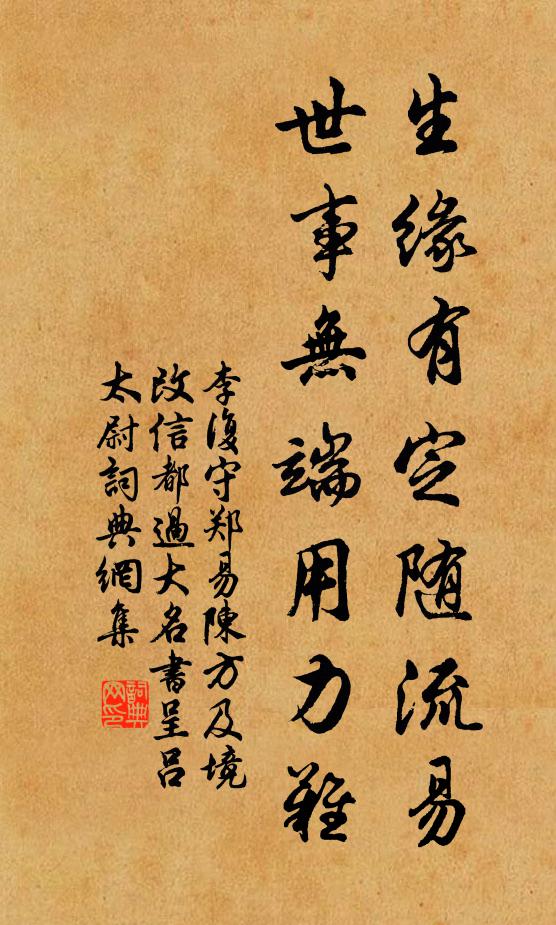 生缘有定随流易
世事無端用力難
李復守郑易陳方及境
改信都過大名書呈吕
太尉詞典網集
詞典
网印